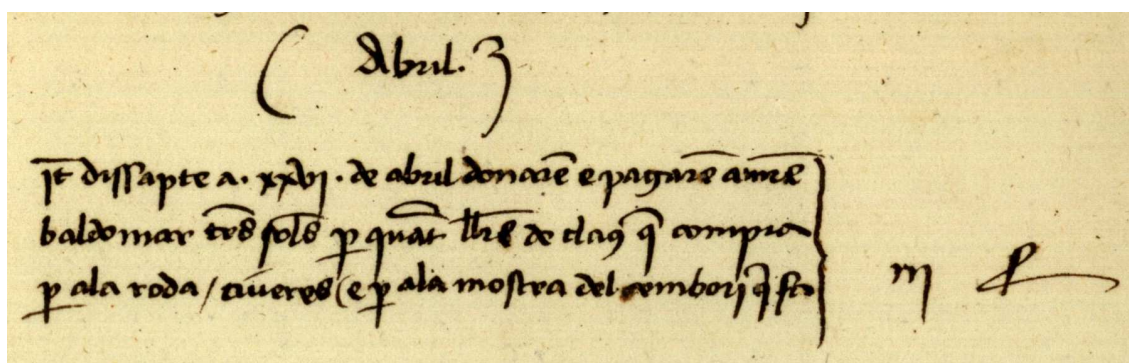 Abril.
it dissapte a. xxvi. de abril donare e pagare a mre
baldomar tres sols p quat llrs de claus q compra
p a la roda / civeres ( e p a la mostra del cembori q fer
iii s